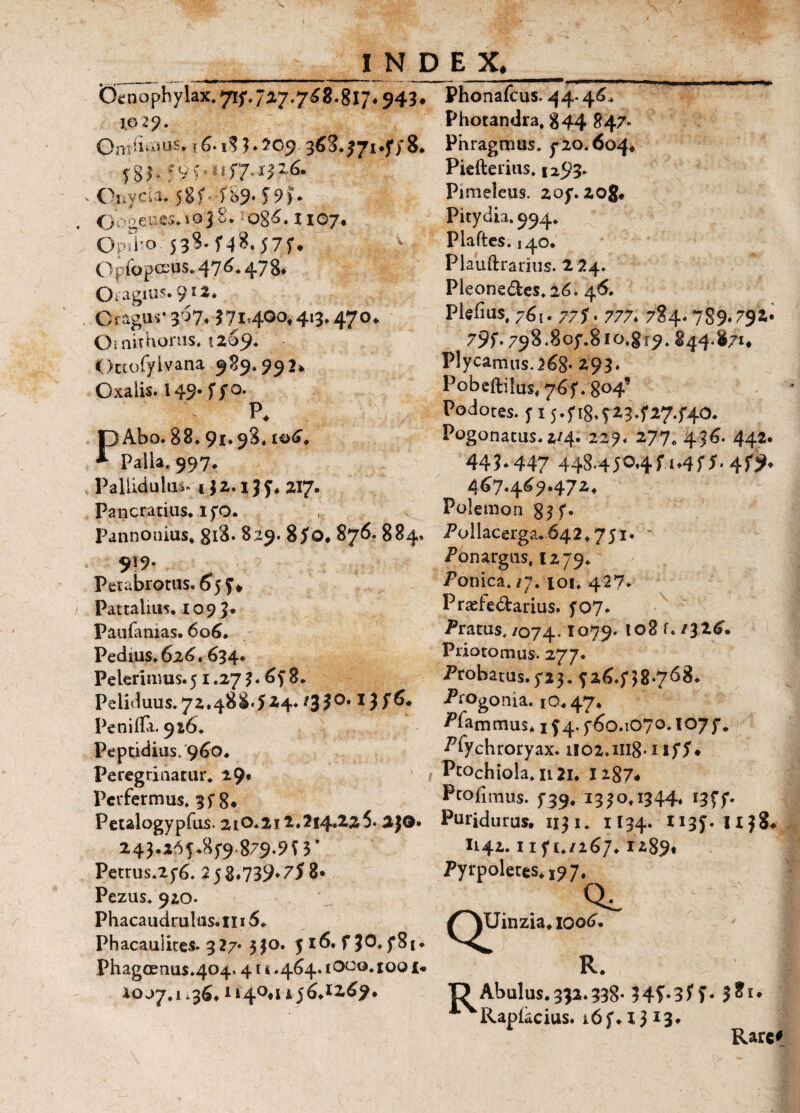 INDEX.
Oenophylax. 715.727.768.817.943.
1029.
583. 595.
Onycia. 585. 589. 595.
1107.
538. 548. 575.
Opsopœus. 476. 478.
Oragius. 912.
Oragus. 371.400.413.470.
Ornithorus. 1269.
Ottosylvana 989.992.
Oxalis. 149. 550.
P.
PAbo. 88. 91. 98. 106.
Palla. 997.
Pallidulus. 132. 135. 217.
Pancratius. 150.
Pannonius. 818. 829. 850. 876. 884.
919.
Petabrotus. 655.
Pattalius. 1093.
Pausanias. 606.
Pedius. 626. 634.
Pelerimus. 51.273. 658.
Peliduus. 72.488.524. 1330. 1356.
Penissa. 926.
Peptidius. 960.
Peregrinatur. 29.
Perfermus. 358.
Petalogypsus. 210.212.214.225. 230.
243.265.859.879.953.
Petrus.256. 258.739.758.
Pezus. 920.
Phacaudrulus.1116.
Phacaulites. 327. 330. 516. 530. 581.
Phagœnus.404. 411.464.1000.1001.
1007.1136. 1140.1156.1269.
Phonascus. 44. 46.
Photandra. 844 847.
Phragmus. 520. 604.
Piesterius. 1293.
Pimeleus. 205. 208.
Pitydia. 994.
Plastes. 140.
Plaustrarius. 224.
Pleonectes. 26. 46.
Plesius. 761. 775. 777. 784. 789. 792.
795. 798. 805. 810. 819. 844. 871.
Plycamus. 268. 293.
Pobestilus. 765. 804.
Podotes. 515.518.523.527.540.
Pogonatus. 274. 229. 277. 436. 442.
443. 447 448.450.451.455. 459.
467.469.472.
Polemon 835.
Pollacerga. 642. 751.
Ponargus. 1279.
Ponica. 17. 101. 427.
Præfectarius. 507.
Pratus. 1074. 1079. 1081. 1326.
Priotomus. 277.
Probatus. 523. 526.538.768.
Progonia. 10.47.
Psammus. 154. 560.1070. 1075.
Psychroryax. 1102.1118.1155.
Ptochiola. 1121. 1287.
Ptosimus. 539. 1330.1344. 1355.
Puridurus. 1131. 1134. 1135. 1138.
1142. 1151. 1267. 1289.
Pyrpoletes. 197.
Q.
QUinzia. 1006.
R.
RAbulus. 332.338. 345.355. 381.
Rapsacius. 165. 1313.
Rare